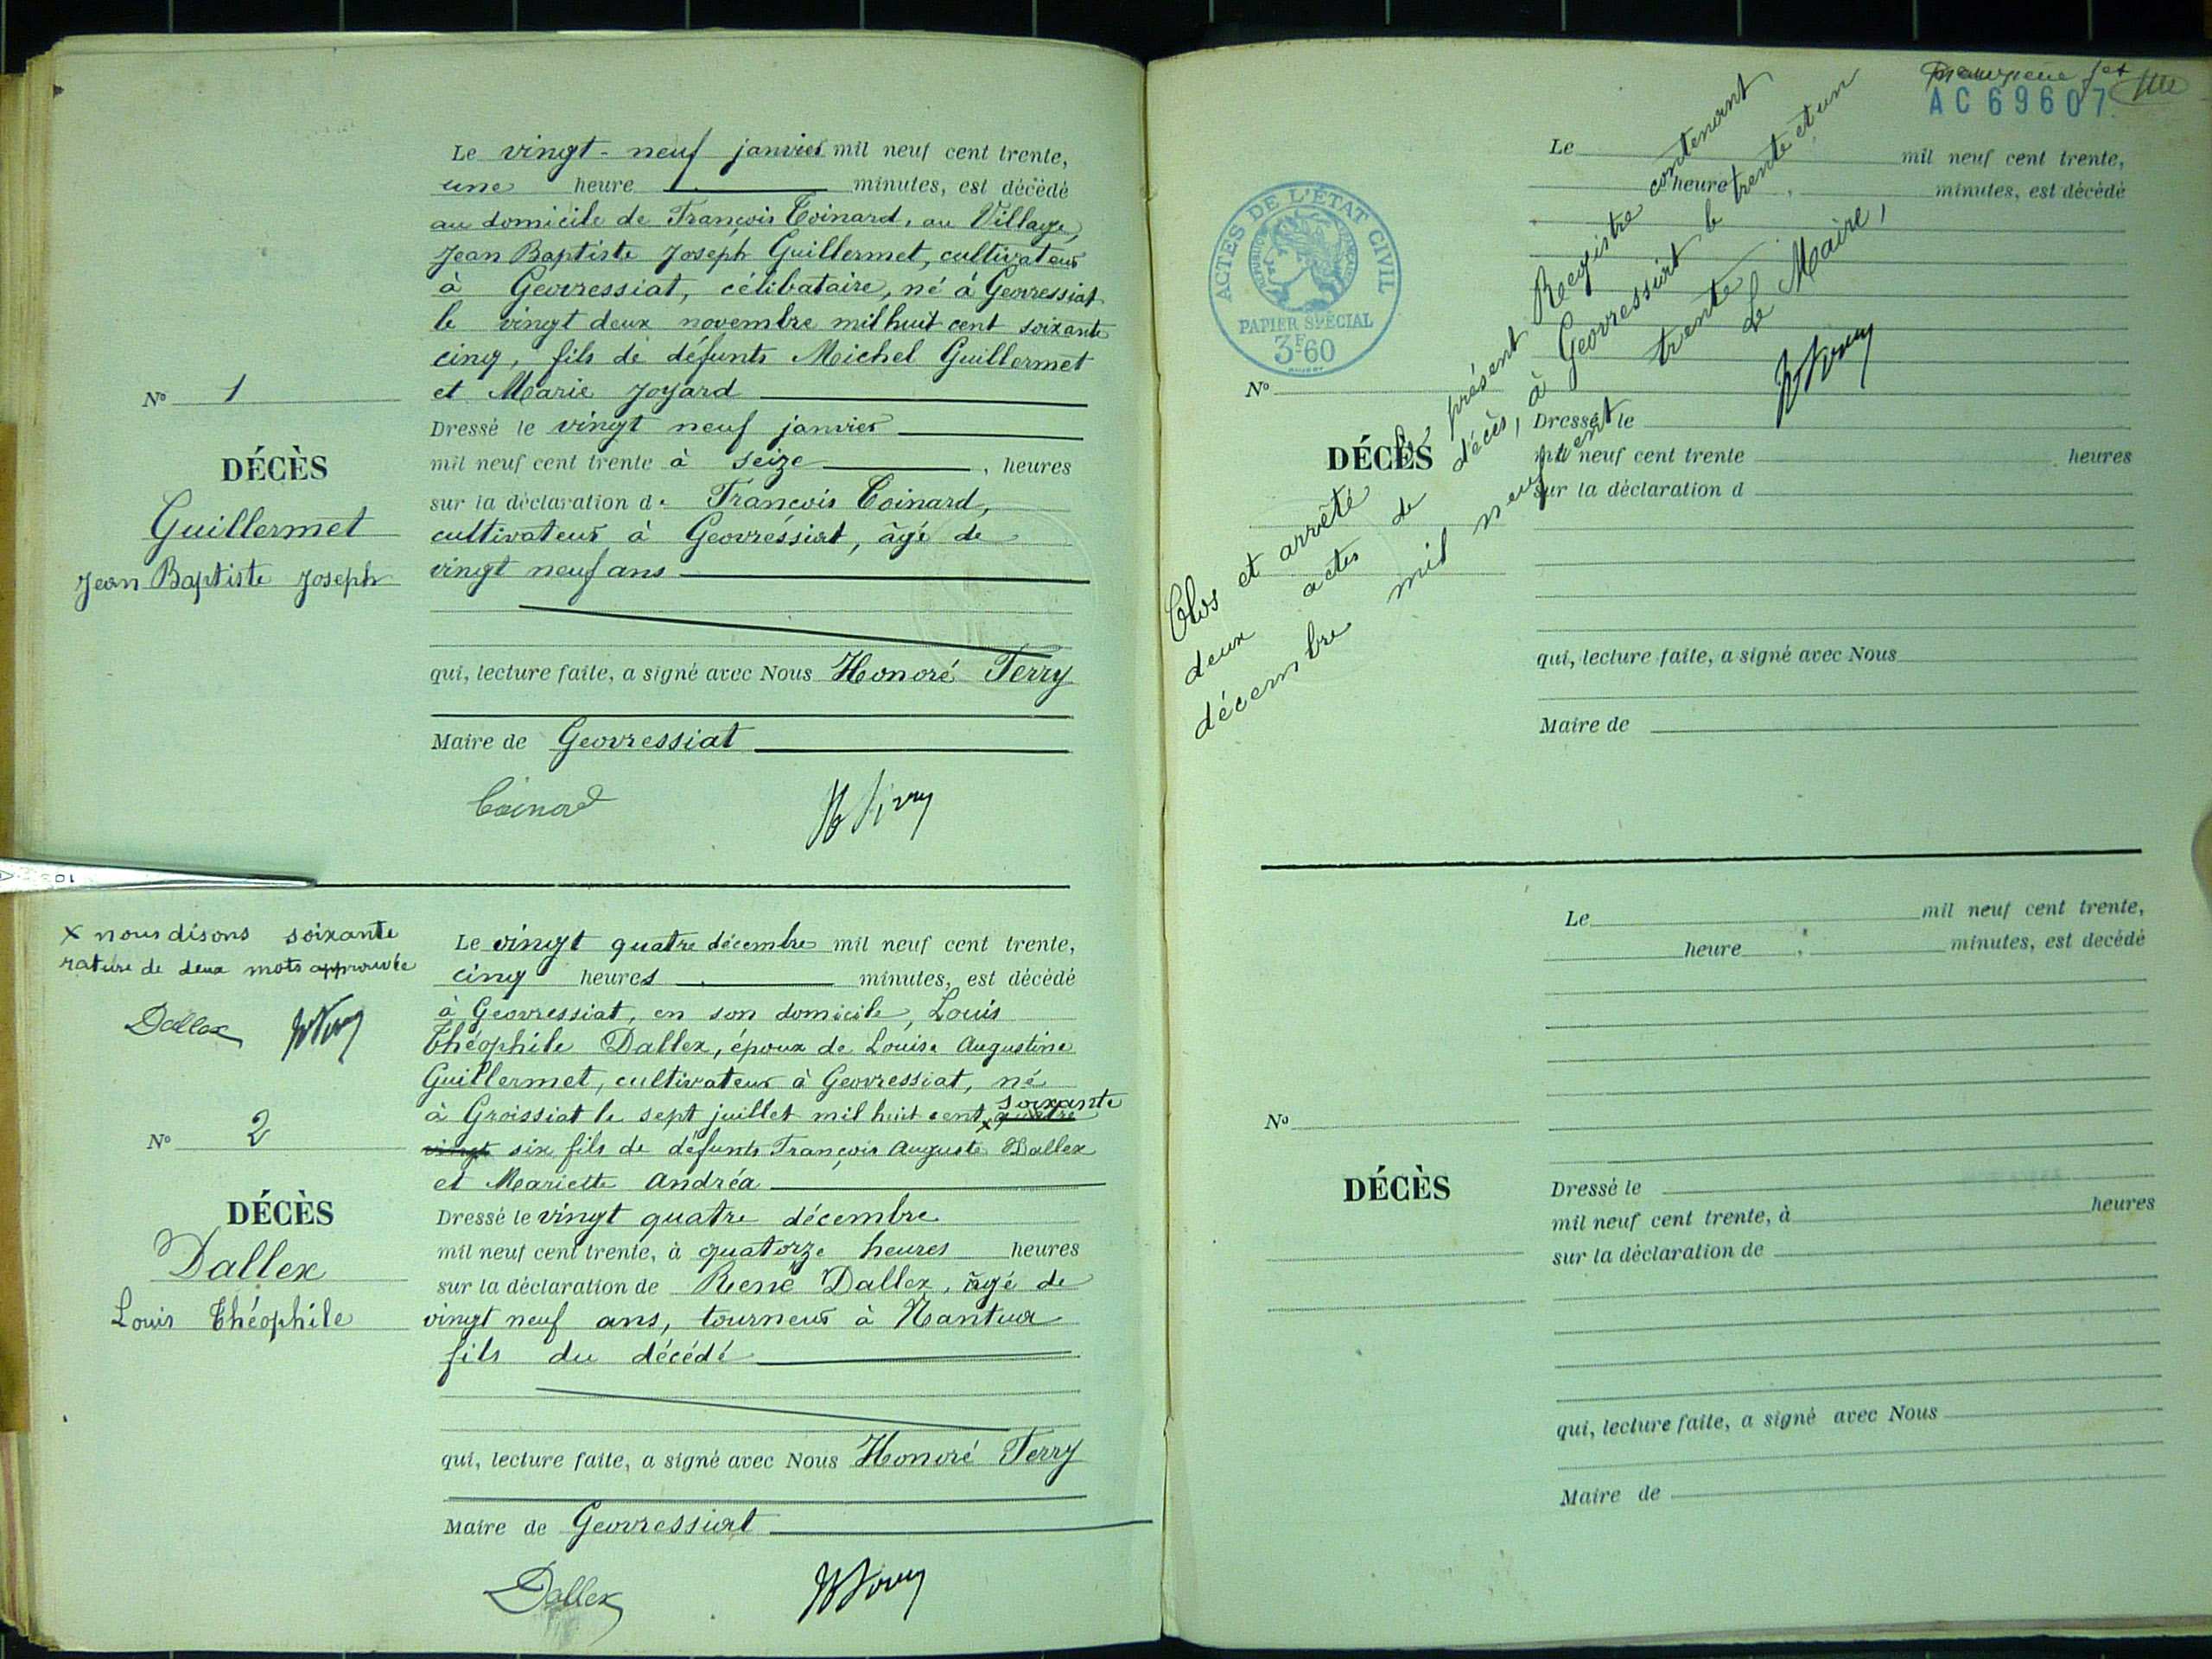 Le vingt-neuf janvier mil neuf cent trente,
une heure minutes, est décédé
au domicile de François Coinard, au Village,
Jean Baptiste Joseph Guillermet, cultivateur
à Geovressiat, célibataire, né à Geovressiat
le vingt deux novembre mil huit cent soixante
cinq, fils de défunts Michel Guillermet
et Marie Joyard
Dressé le vingt neuf janvier
mil neuf cent trente à seize, heures
sur la déclaration de François Coinard,
cultivateur à Geovressiat, âgé de
vingt neuf ans
qui, lecture faite, a signé avec Nous Honoré Ferry
Maire de Geovressiat
Coinard
N° 1
DÉCÈS
Guillermet
Jean Baptiste Joseph
x nous disons soixante
rature de deux mots approuvée
Dallex
N° 2
DÉCÈS
Dallex
Louis Théophile
Le vingt quatre décembre mil neuf cent trente,
cinq heures minutes, est décédé
à Geovressiat, en son domicile, Louis
Théophile Dallex, époux de Louise Augustine
Guillermet, cultivateur à Geovressiat, né
soixante
à Groissiat le sept juillet mil huit cent x quatre
vingt six fils de défunts François Auguste Dallex
et Mariette Andréa
Dressé le vingt quatre décembre
mil neuf cent trente, à quatorze heures heures
sur la déclaration de René Dallex, âgé de
vingt neuf ans, tourneur à Nantua
fils du décédé
qui, lecture faite, a signé avec Nous Honoré Ferry
Maire de Geovressiat
Dallex
AC69607
ACTES DE L'ÉTAT CIVIL
RÉPUBLIQUE FRANÇAISE
PAPIER SPÉCIAL
3F60
Clos et arrêté le présent Registre contenant
deux actes de décès, à Geovressiat le trente et un
décembre mil neuf cent trente
Le Maire,
Le mil neuf cent trente,
heure minutes, est décédé
N°
DÉCÈS
Dressé le
mil neuf cent trente heures
sur la déclaration d
qui, lecture faite, a signé avec Nous
Maire de
Le mil neuf cent trente,
heure minutes, est décédé
N°
DÉCÈS
Dressé le
mil neuf cent trente, à heures
sur la déclaration de
qui, lecture faite, a signé avec Nous
Maire de